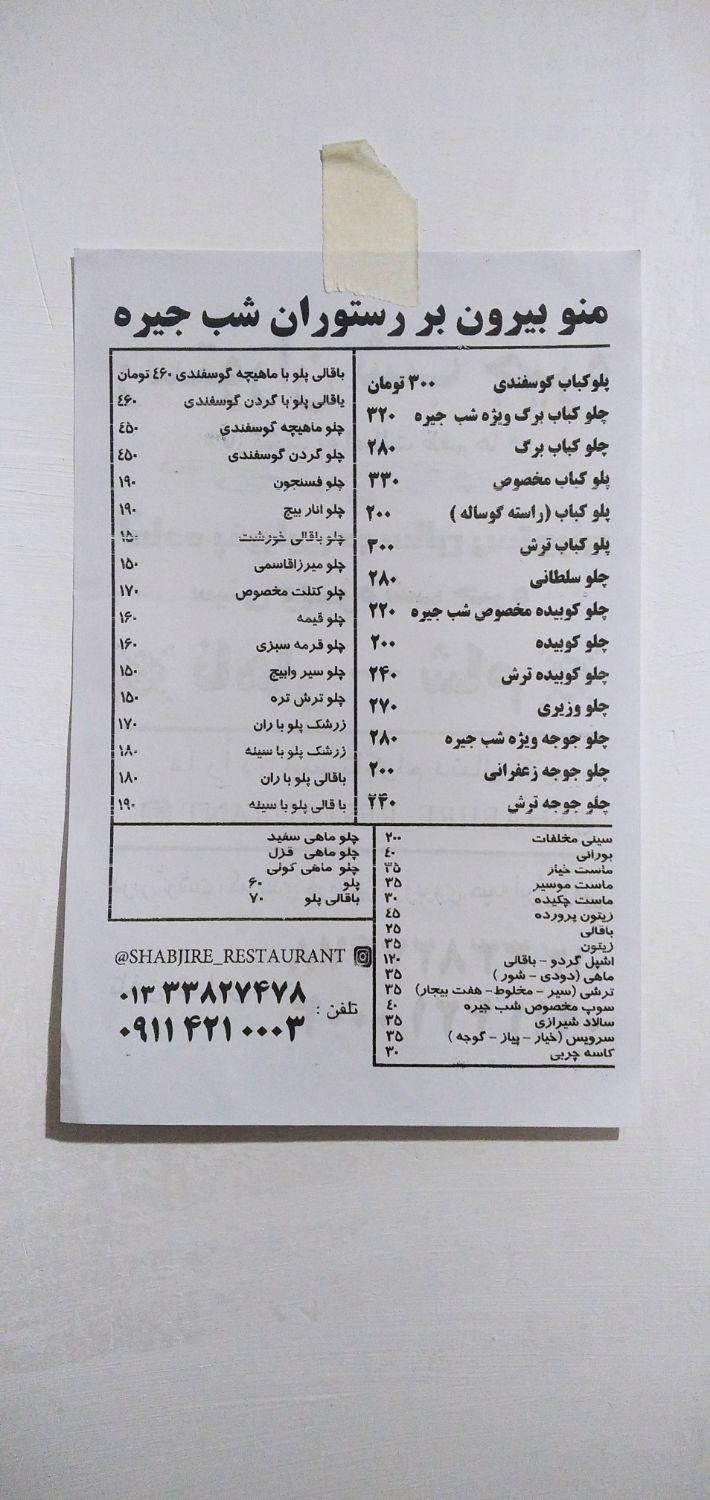 منو بیرون بر رستوران شب جیره
پلوکباب گوسفندی ۳۰۰ تومان
چلو کباب برگ ویژه شب جیره ۳۲۰
چلو کباب برگ ۲۸۰
پلو کباب مخصوص ۳۳۰
پلو کباب (راسته گوساله ) ۲۰۰
پلو کباب ترش ۳۰۰
چلو سلطانی ۲۸۰
چلو کوبیده مخصوص شب جیره ۲۲۰
چلو کوبیده ۲۰۰
چلو کوبیده ترش ۲۴۰
چلو وزیری ۲۷۰
چلو جوجه ویژه شب جیره ۲۸۰
چلو جوجه زعفرانی ۲۰۰
چلو جوجه ترش ۲۴۰
باقالی پلو با ماهیچه گوسفندی ۴۶۰ تومان
باقالی پلو با گردن گوسفندی ۴۶۰
چلو ماهیچه گوسفندی ۴۵۰
چلو گردن گوسفندی ۴۵۰
چلو فسنجون ۱۹۰
چلو انار بیج ۱۹۰
چلو باقالی خورشت ۱۵۰
چلو میرزاقاسمی ۱۵۰
چلو کتلت مخصوص ۱۷۰
چلو قیمه ۱۶۰
چلو قرمه سبزی ۱۶۰
چلو سیر وابیج ۱۵۰
چلو ترش تره ۱۵۰
زرشک پلو با ران ۱۷۰
زرشک پلو با سینه ۱۸۰
باقالی پلو با ران ۱۸۰
با قالی پلو با سینه ۱۹۰
سینی مخلفات ۲۰۰
بورانی ۴۰
ماست خیار ۳۵
ماست موسیر ۳۵
ماست چکیده ۳۰
زیتون پرورده ۴۵
باقالی ۲۵
زیتون ۳۵
اشپل گردو - باقالی ۱۲۰
ماهی (دودی - شور ) ۳۵
ترشی (سیر - مخلوط- هفت بیجار) ۳۵
سوپ مخصوص شب جیره ۴۰
سالاد شیرازی ۳۵
سرویس (خیار - پیاز - گوجه ) ۳۵
کاسه چربی ۳۰
چلو ماهی سفید
چلو ماهی قزل
چلو ماهی کولی
پلو ۶۰
باقالی پلو ۷۰
@SHABJIRE_RESTAURANT
تلفن :
۰۱۳ ۳۳۸۲۷۴۷۸
۰۹۱۱ ۴۲۱ ۰۰۰۳